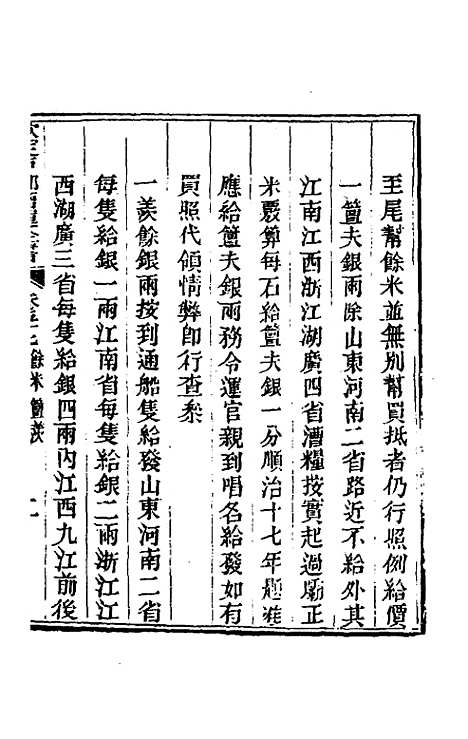 至尾幫餘米並無別幫買抵者仍行照例給價
一籄夫銀兩除山東河南二省路近不給外其
江南江西浙江湖廣四省漕糧按實起過廟正
米覈算每石給籄夫銀一分順治十七年題准
應給籄夫銀兩務令運官親到唱名給發如有
買照代領情弊即行查叅
一羨餘銀兩按到通船隻給發山東河南二省
每隻給銀一兩江南省每隻給銀二兩浙江江
西湖廣三省每隻給銀四兩內江西九江前後